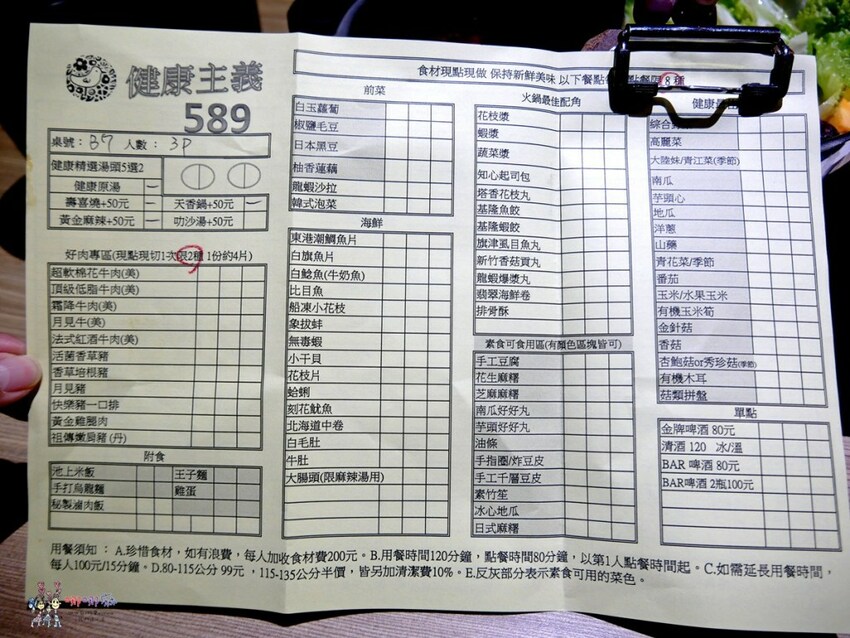 健康主義
589
桌號：B7 人數：3P
健康精選湯頭5選2
健康原湯 一
壽喜燒+50元 天香鍋+50元 一
黃金麻辣+50元 一 叻沙湯+50元
好肉專區(現點現切1次限2種 1份約4片)
超軟棉花牛肉(美)
頂級低脂牛肉(美)
霜降牛肉(美)
月見牛(美)
法式紅酒牛肉(美)
活菌香草豬
香草培根豬
月見豬
快樂豬一口排
黃金雞腿肉
祖傳嫩肩豬(丹)
附食
池上米飯 王子麵
手打烏龍麵 雞蛋
秘製滷肉飯
食材現點現做 保持新鮮美味 以下餐點
8種
前菜
白玉蘿蔔
椒鹽毛豆
日本黑豆
柚香蓮藕
龍蝦沙拉
韓式泡菜
海鮮
東港潮鯛魚片
白旗魚片
白鯰魚(牛奶魚)
比目魚
船凍小花枝
象拔蚌
無毒蝦
小干貝
花枝片
蛤蜊
刻花魷魚
北海道中卷
白毛肚
牛肚
大腸頭(限麻辣湯用)
火鍋最佳配角
花枝漿
蝦漿
蔬菜漿
知心起司包
塔香花枝丸
基隆魚餃
基隆蝦餃
旗津虱目魚丸
新竹香菇貢丸
龍蝦爆漿丸
翡翠海鮮卷
排骨酥
素食可食用區(有顏色區塊皆可)
手工豆腐
花生麻糬
芝麻麻糬
南瓜好好丸
芋頭好好丸
油條
手指圈/炸豆皮
手工千層豆皮
素竹笙
冰心地瓜
日式麻糬
健康
綜合
高麗菜
大陸妹/青江菜(季節)
南瓜
芋頭心
地瓜
洋蔥
山藥
青花菜/季節
番茄
玉米/水果玉米
有機玉米筍
金針菇
香菇
杏鮑菇or秀珍菇(季節)
有機木耳
菇類拼盤
單點
金牌啤酒 80元
清酒 120 冰/溫
BAR 啤酒 80元
BAR啤酒 2瓶100元
用餐須知：A.珍惜食材，如有浪費，每人加收食材費200元。B.用餐時間120分鐘，點餐時間80分鐘，以第1人點餐時間起。C.如需延長用餐時間，
每人100元/15分鐘。D.80-115公分 99元，115-135公分半價，皆另加清潔費10%。E.反灰部分表示素食可用的菜色。